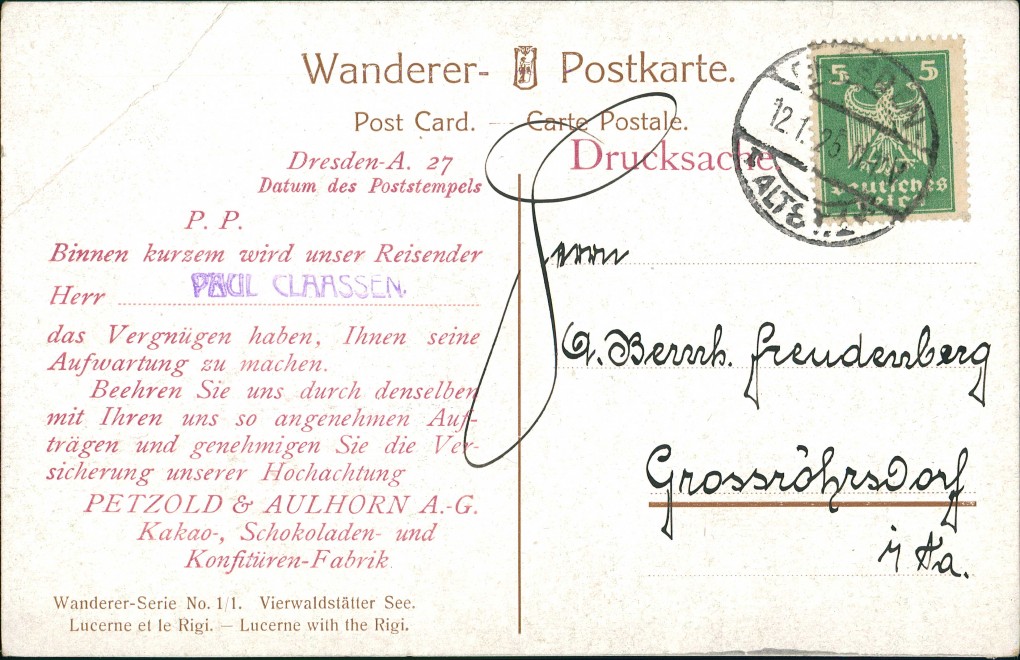 Wanderer- Postkarte.
Post Card. — Carte Postale.
Drucksache.
5 5
Deutsches
Reich
DRESDEN
12.1.26
ALTST.
Dresden-A. 27
Datum des Poststempels
P. P.
Binnen kurzem wird unser Reisender
Herr PAUL CLAASSEN.
das Vergnügen haben, Ihnen seine
Aufwartung zu machen.
Beehren Sie uns durch denselben
mit Ihren uns so angenehmen Auf-
trägen und genehmigen Sie die Ver-
sicherung unserer Hochachtung
PETZOLD & AULHORN A.-G.
Kakao-, Schokoladen- und
Konfitüren-Fabrik.
Wanderer-Serie No. 1/1. Vierwaldstätter See.
Lucerne et le Rigi. — Lucerne with the Rigi.
Herrn
G. Bernh. Freudenberg
Grossröhrsdorf
i/Sa.